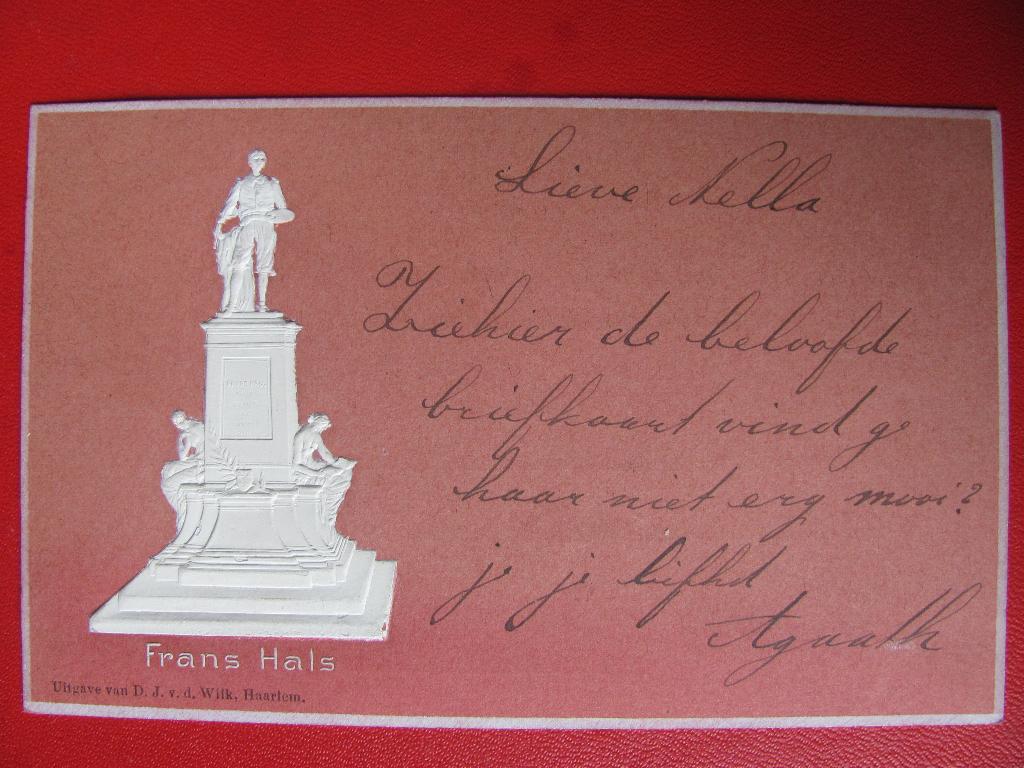 Lieve Nella
Ziehier de beloofde
briefkaart vind ge
haar niet erg mooi?
je je liefhd
Agaath
Frans Hals
Uitgave van D. J. v. d. Wilk, Haarlem.